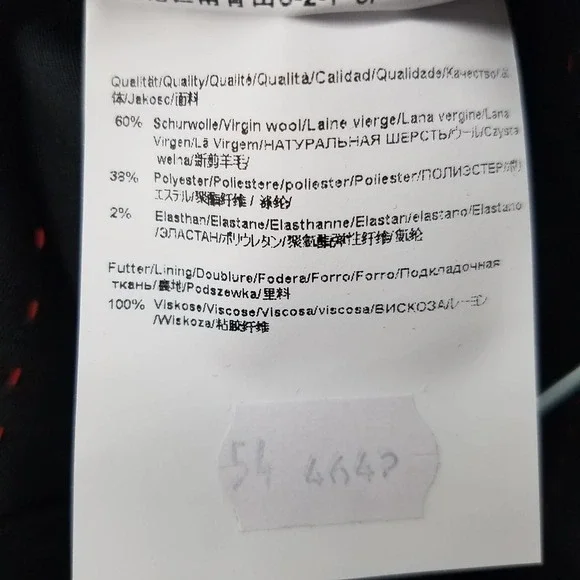 Qualität/Quality/Qualité/Qualità/Calidad/Qualidade/Качество/
体/Jakosc/面料
60% Schurwolle/Virgin wool/Laine vierge/Lana vergine/Lana
Virgen/Lã Virgem/НАТУРАЛЬНАЯ ШЕРСТЬ/ウール/Czysta
welna/新剪羊毛/
38% Polyester/Poliestere/poliester/Poliester/ПОЛИЭСТЕР/ポリ
エステル/聚酯纤维/ 涤纶/
2% Elasthan/Elastane/Elasthanne/Elastan/elastano/Elastano
/ЭЛАСТАН/ポリウレタン/聚氨酯弹性纤维/氨纶
Futter/Lining/Doublure/Fodera/Forro/Forro/Подкладочная
ткань/裏地/Podszewka/里料
100% Viskose/Viscose/Viscosa/viscosa/ВИСКОЗА/レーヨン
/Wiskoza/粘胶纤维
54 4642